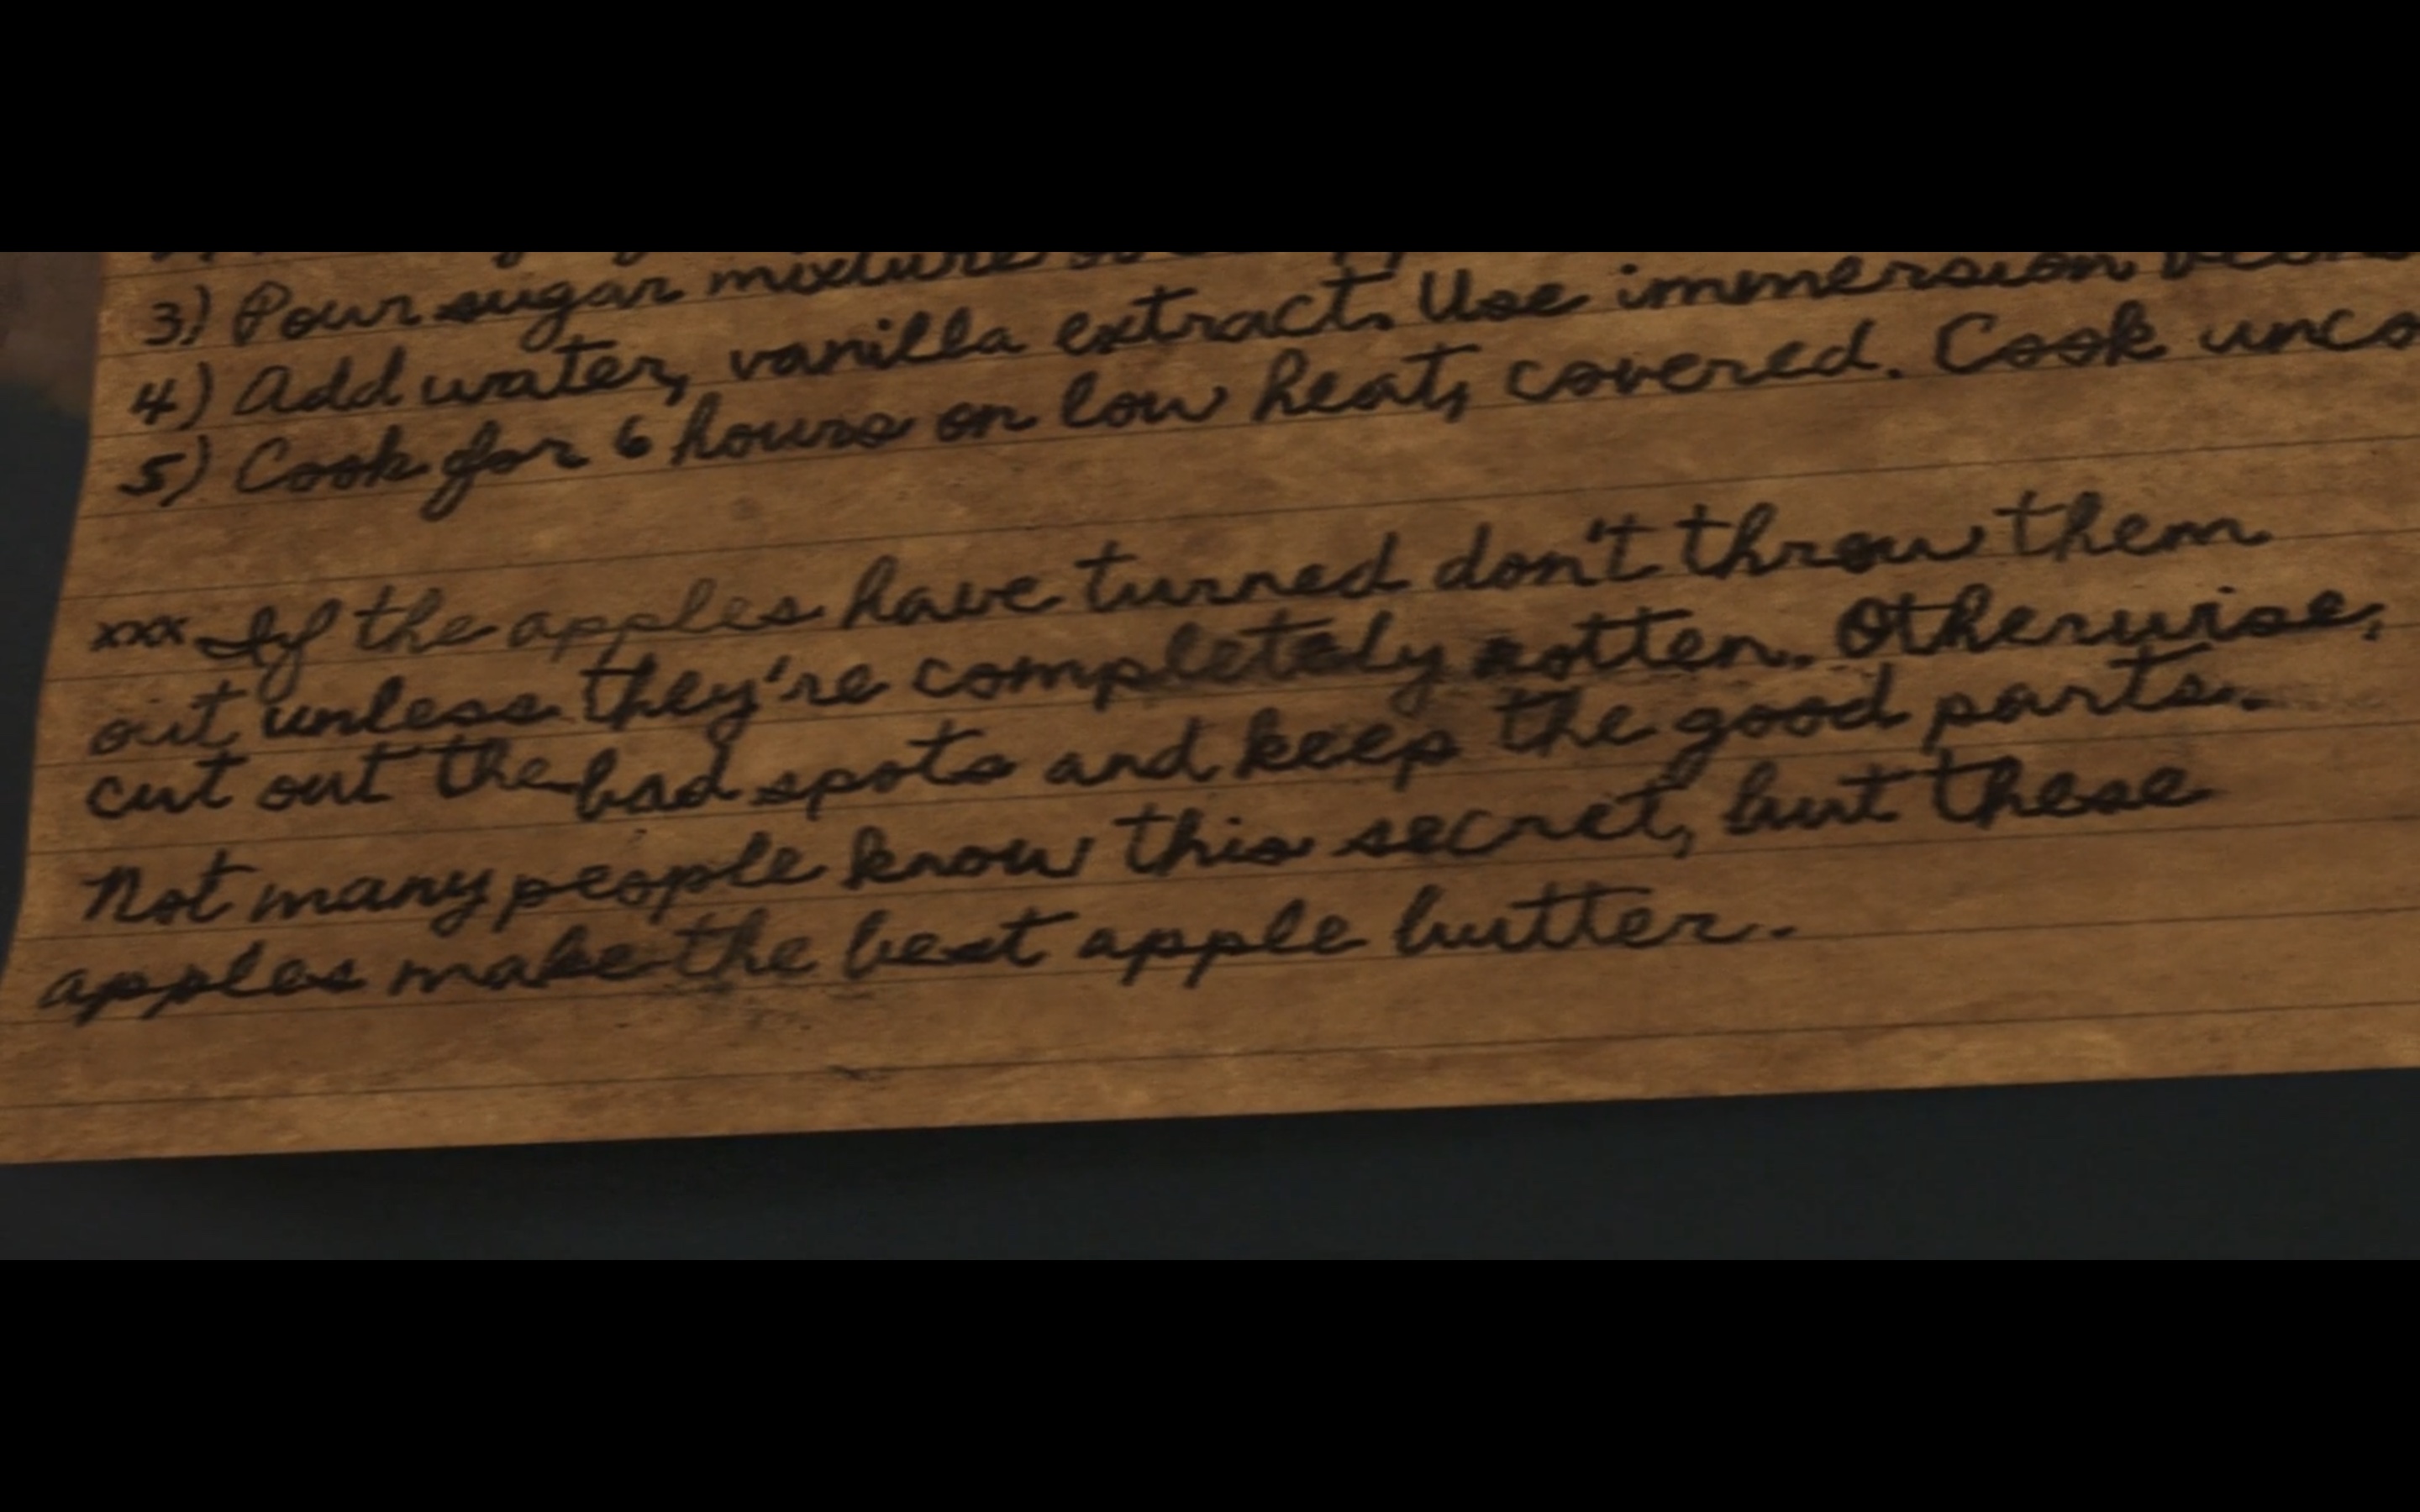 3) Pour sugar mixture
4) Add water, vanilla extract. Use immersion
5) Cook for 6 hours on low heat, covered. Cook unco
xxx If the apples have turned don't throw them
out unless they're completely rotten. Otherwise,
cut out the bad spots and keep the good parts.
Not many people know this secret, but these
apples make the best apple butter.